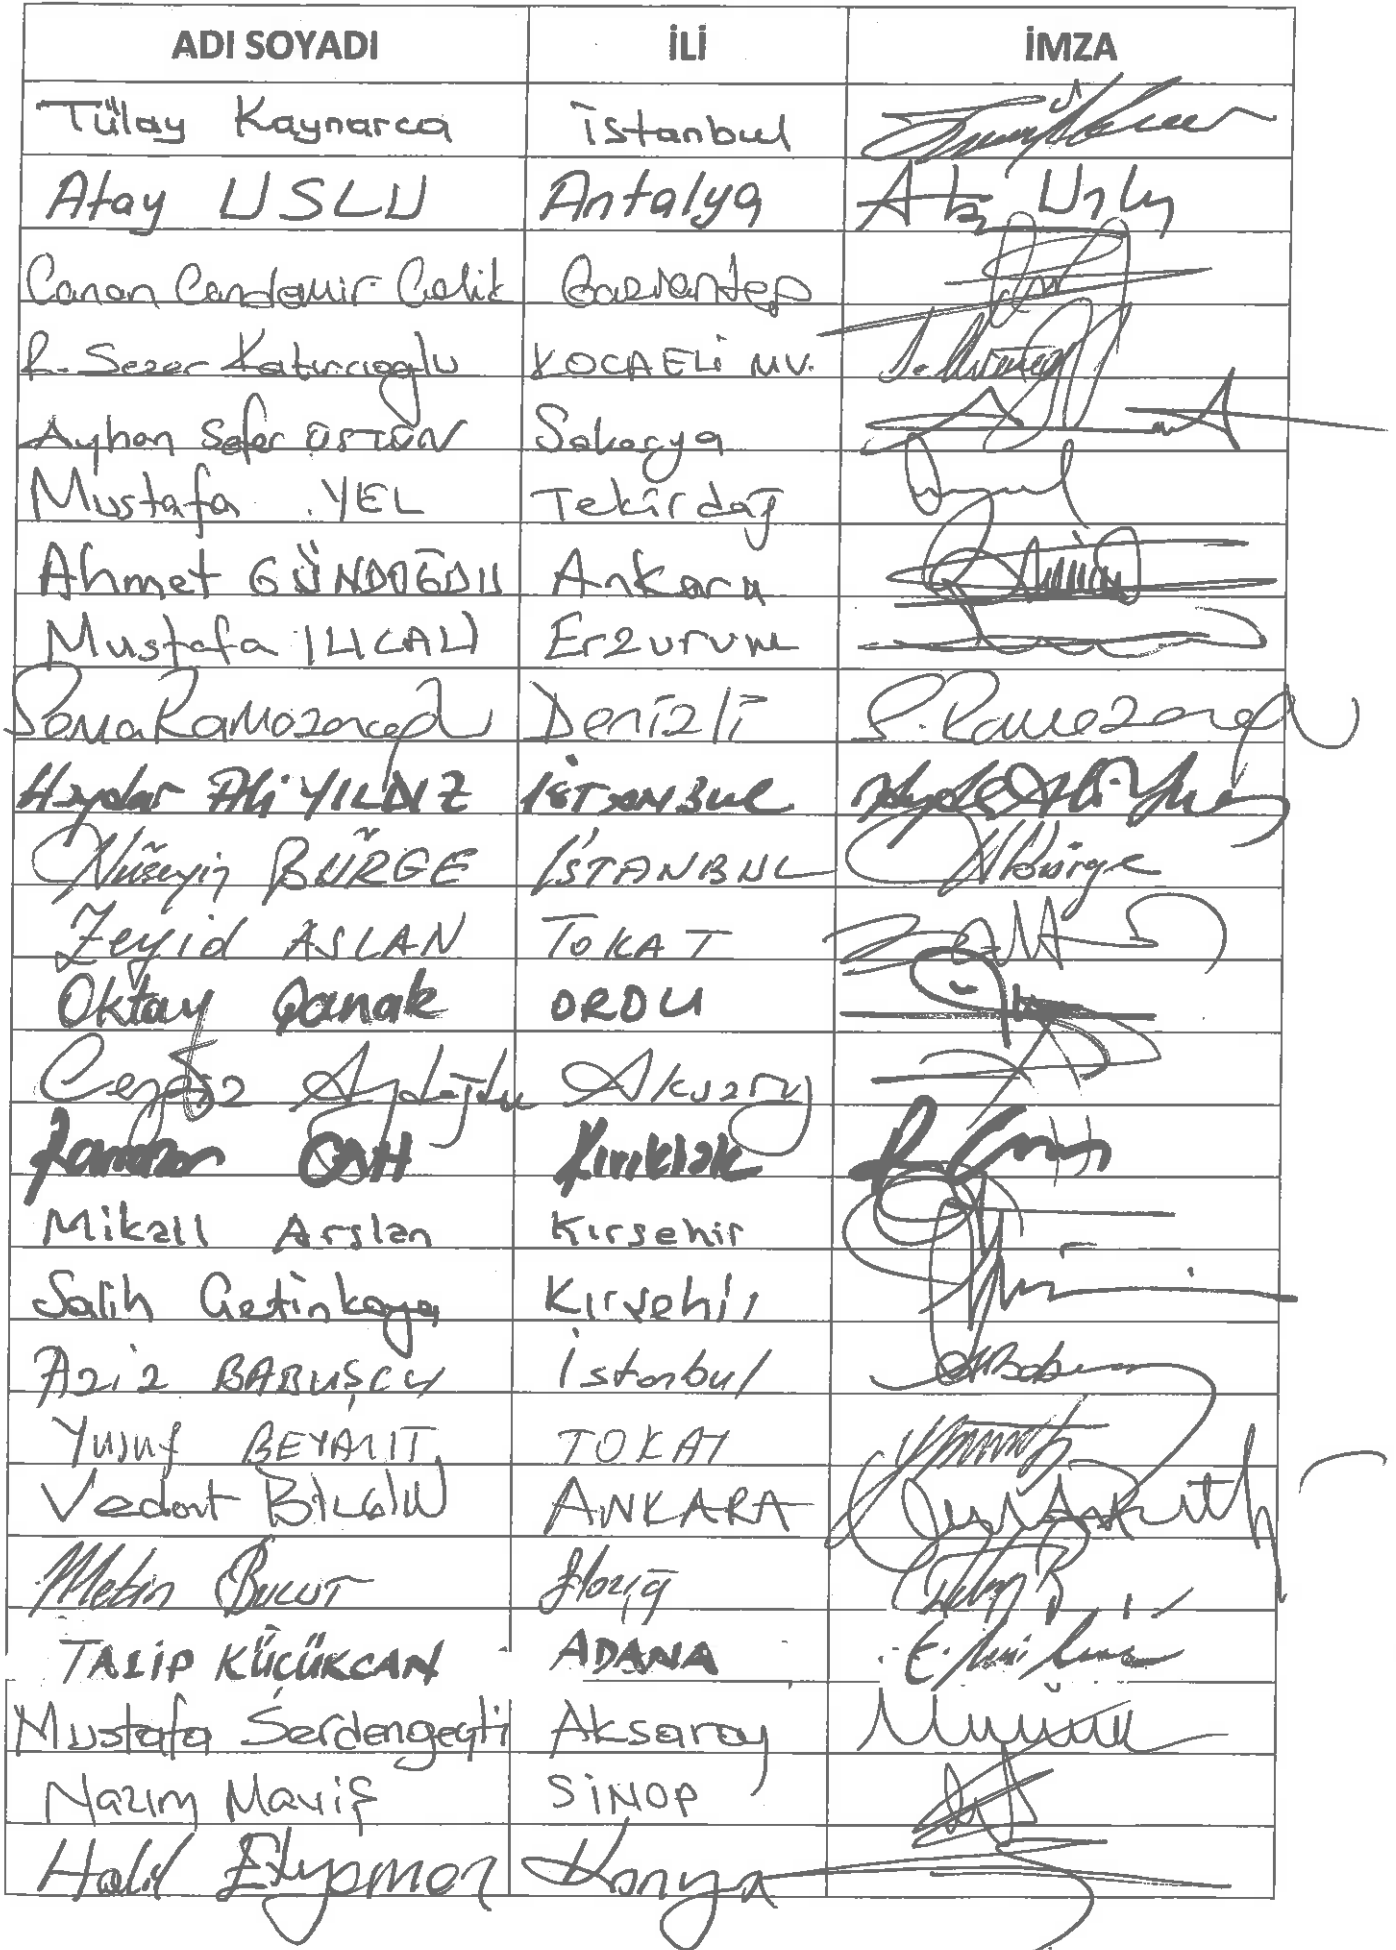 ADI SOYADI İLİ İMZA
Tülay Kaynarca İstanbul
Atay USLU Antalya
Canan Candemir Çelik Gaziantep
R. Sezer Katırcıoğlu KOCAELİ MV.
Ayhan Sefer ÜSTÜN Sakarya
Mustafa YEL Tekirdağ
Ahmet GÜNDOĞDU Ankara
Mustafa ILICALI Erzurum
Sema Ramazanoğlu Denizli S. Ramazanoğlu
Haydar Ali YILDIZ İSTANBUL
Hüseyin BÜRGE İSTANBUL HBürge
Zeyid ASLAN TOKAT
Oktay Çanak ORDU
Cengiz Aydoğdu Aksaray
Ramazan CAN Kırıkkale
Mikail Arslan Kırşehir
Salih Çetinkaya Kırşehir
Aziz BABUŞCU İstanbul
Yusuf BEYAZIT TOKAT
Vedat BİLGİN ANKARA
Metin BULUT Elazığ
TALİP KÜÇÜKCAN ADANA
Mustafa Serdengeçti Aksaray
Nazım Maviş SİNOP
Halil Etyemez Konya